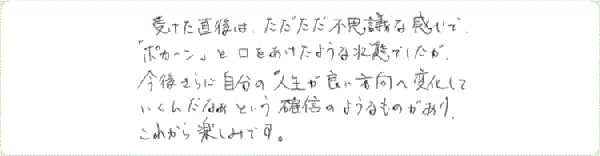 受けた直後は、ただただ不思議な感じで、
「ポカーン」と口をあけたような状態でしたが、
今後さらに自分の人生が良い方向へ変化して
いくんだなぁという確信のようなものがあり、
これから楽しみです。